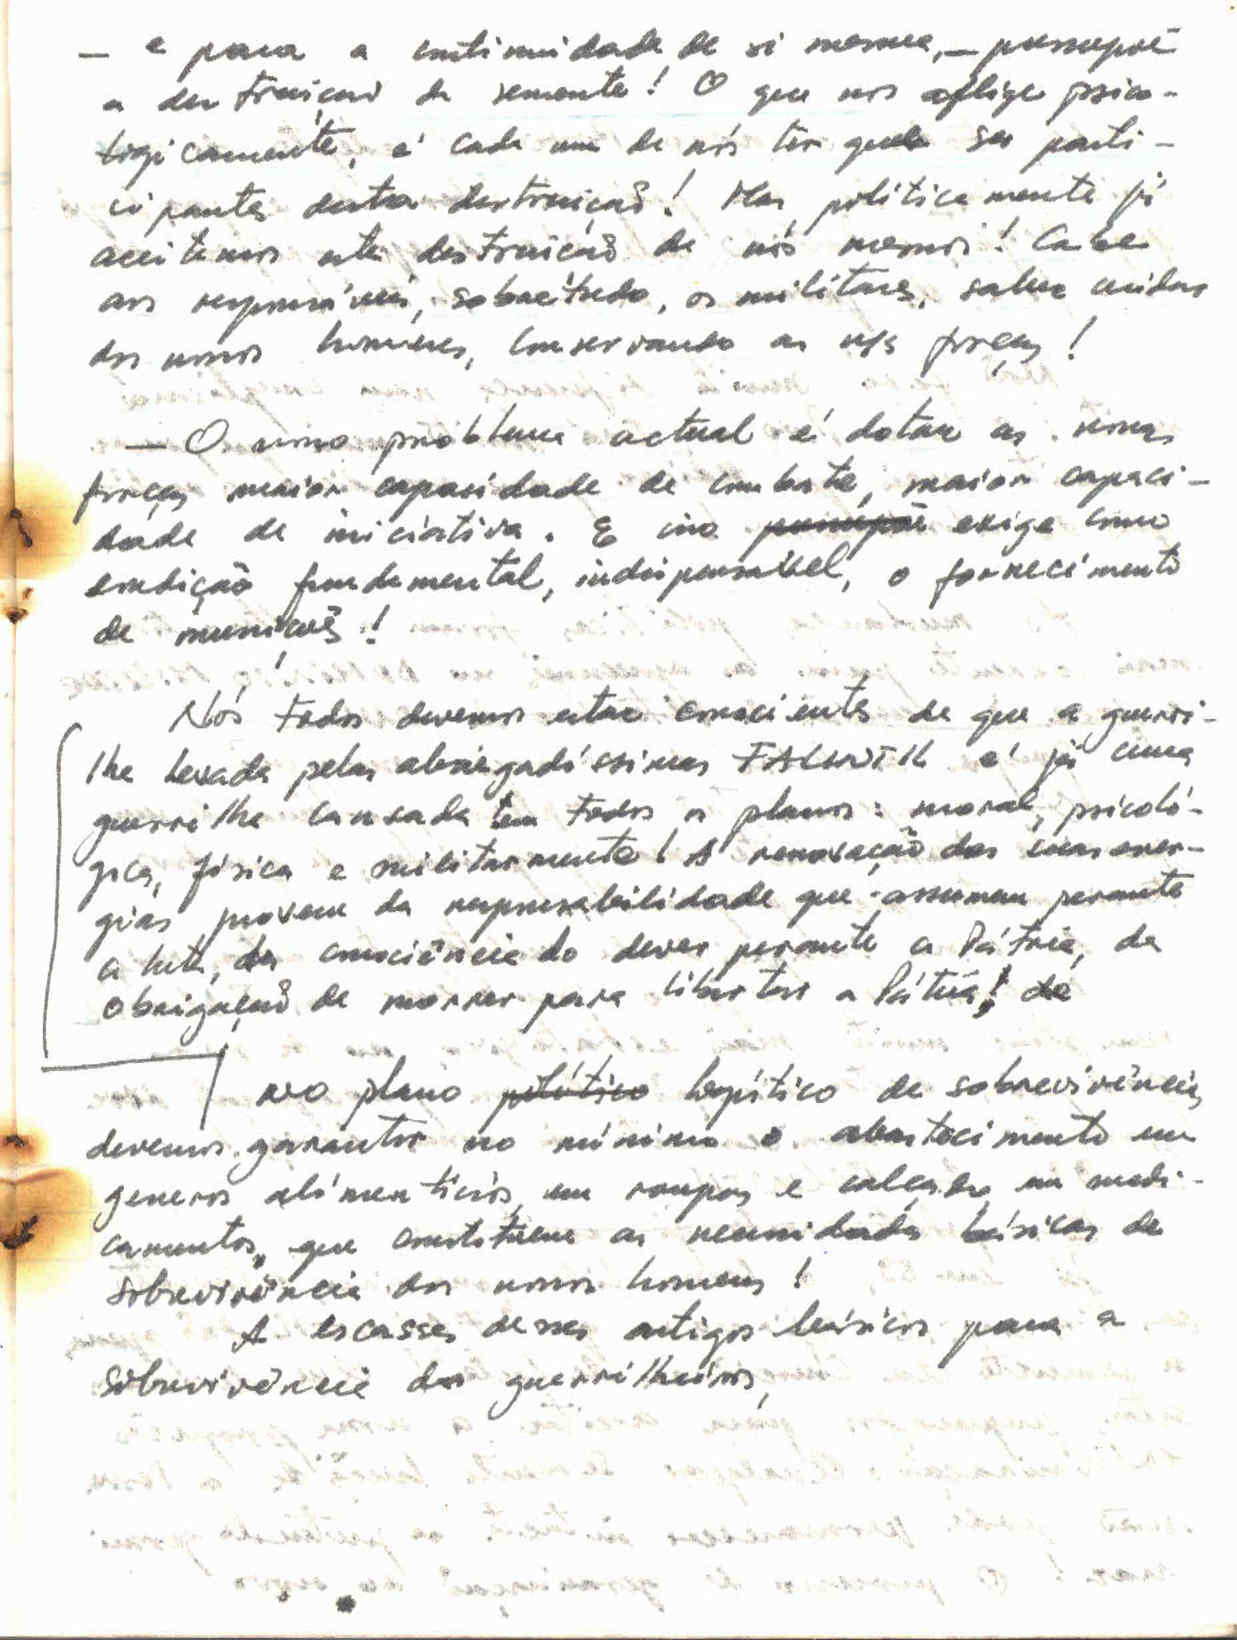 — e para a continuidade de si mesma, — pressupõe
a destruição da semente! O que nos aflige psico-
logicamente, é cada um de nós ter que ser parti-
cipante desta destruição! Mas, politicamente já
aceitamos esta destruição de nós mesmos! Cabe
aos responsáveis, sobretudo, os militares, saber cuidar
dos nossos homens, conservando as nss forças!
— O nosso problema actual é dotar as nossas
forças maior capacidade de combate, maior capaci-
dade de iniciativa. E isso pressupõe exige como
condição fundamental, indispensável, o fornecimento
de munições!
Nós todos devemos estar conscientes de que a guerri-
lha levada pelas abnegadíssimas FALINTIL é já uma
guerrilha cansada em todos os planos: moral, psicoló-
gica, física e militarmente! A renovação das suas ener-
gias provem da responsabilidade que assumem perante
a luta, da consciência do dever perante a Pátria, da
obrigação de morrer para libertar a Pátria! de
No plano político logístico de sobrevivência,
devemos garantir no mínimo o abastecimento em
generos alimentícios, em roupas e calçado, em medi-
camentos, que constituem as necessidades básicas de
sobrevivência dos nossos homens!
A escasses desses artigos básicos para a
sobrevivência dos guerrilheiros,